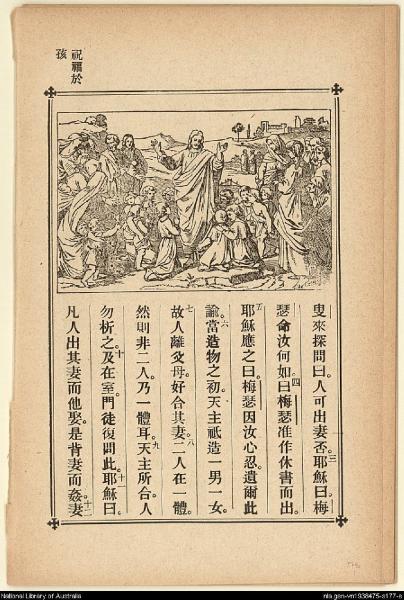 祝福於
孩
叟來探問曰。人可出妻否。三耶穌曰。梅
瑟命汝何如。四曰。梅瑟准作休書而出。
五耶穌應之曰。梅瑟因汝心忍。遺爾此
諭。六當造物之初。天主祗造一男一女。
七故人離父母。好合其妻。八二人在一體。
然則非二人。乃一體耳。九天主所合。人
勿析之。十及在室。門徒復問此。十一耶穌曰。
凡人出其妻而他娶。是背妻而姦。十二妻
National Library of Australia
nla.gen-vn1938475-s177-e